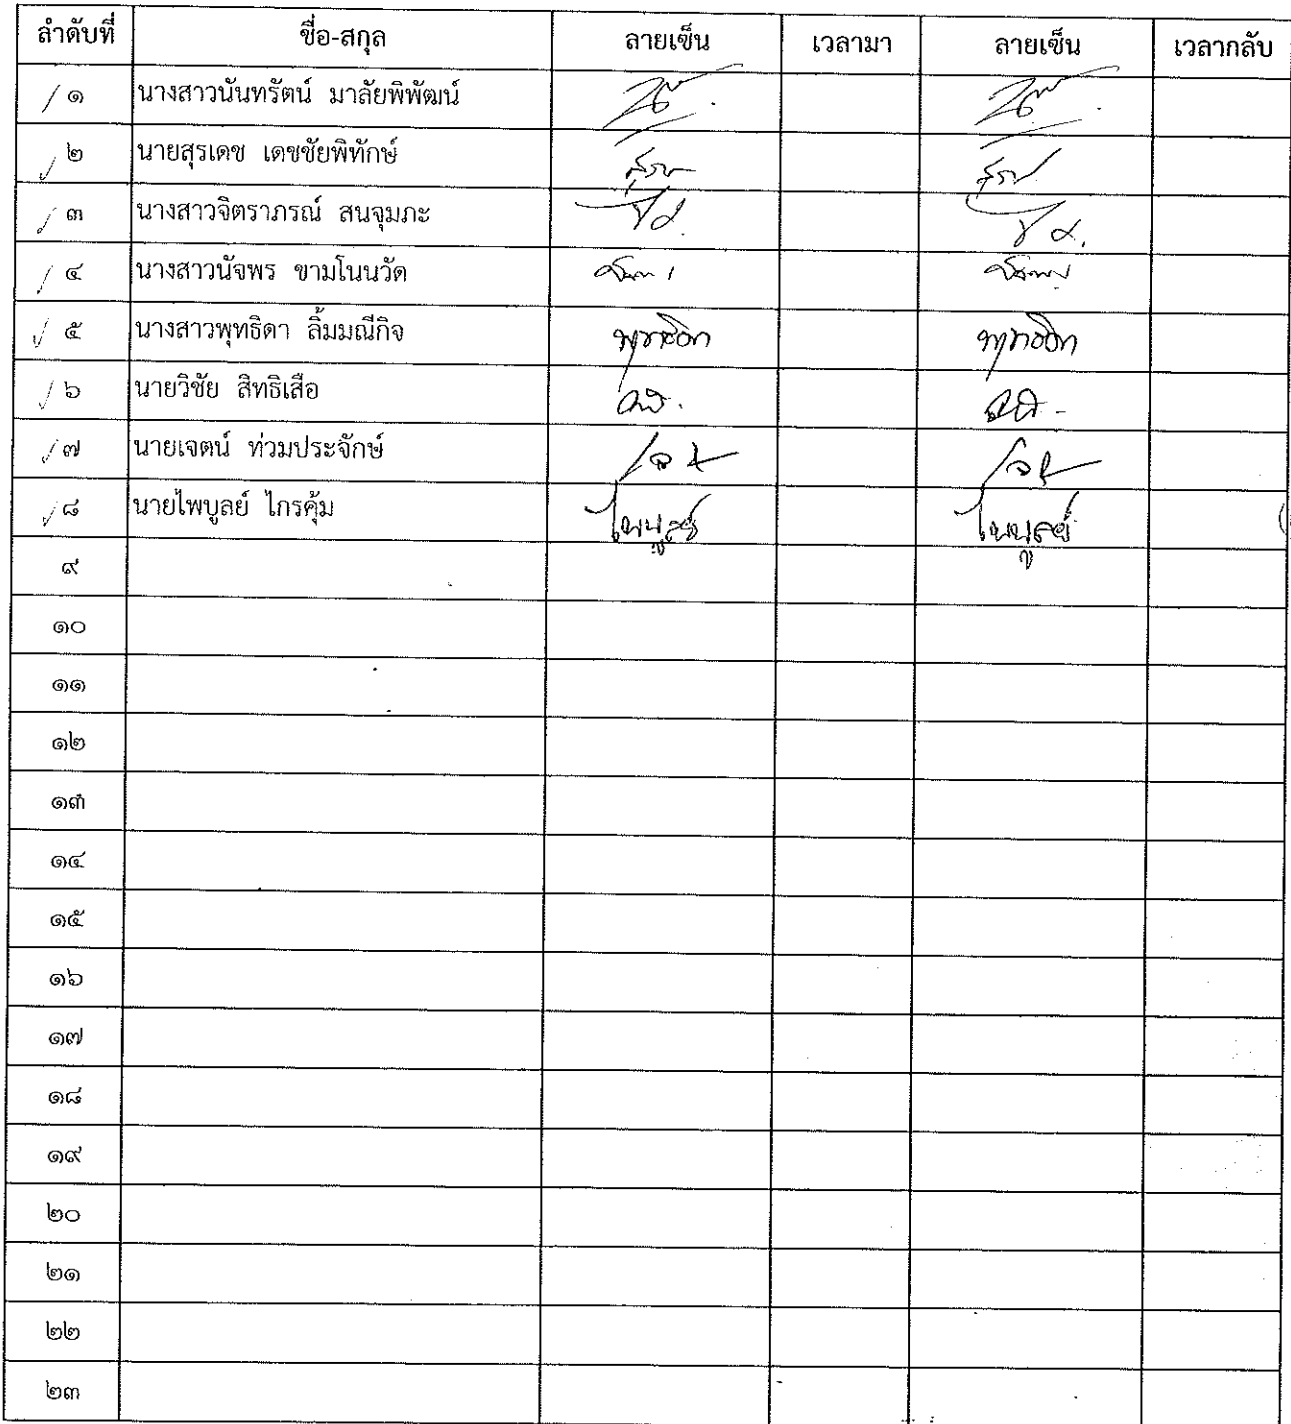 ลำดับที่ ชื่อ-สกุล ลายเซ็น เวลามา ลายเซ็น เวลากลับ
๑ นางสาวนันทรัตน์ มาลัยพิพัฒน์
๒ นายสุรเดช เดชชัยพิทักษ์
๓ นางสาวจิตราภรณ์ สนจุมภะ
๔ นางสาวนัจพร ขามโนนวัด
๕ นางสาวพุทธิดา ลิ้มมณีกิจ พุทธิดา พุทธิดา
๖ นายวิชัย สิทธิเสือ
๗ นายเจตน์ ท่วมประจักษ์
๘ นายไพบูลย์ ไกรคุ้ม ไพบูลย์ ไพบูลย์
๙
๑๐
๑๑
๑๒
๑๓
๑๔
๑๕
๑๖
๑๗
๑๘
๑๙
๒๐
๒๑
๒๒
๒๓